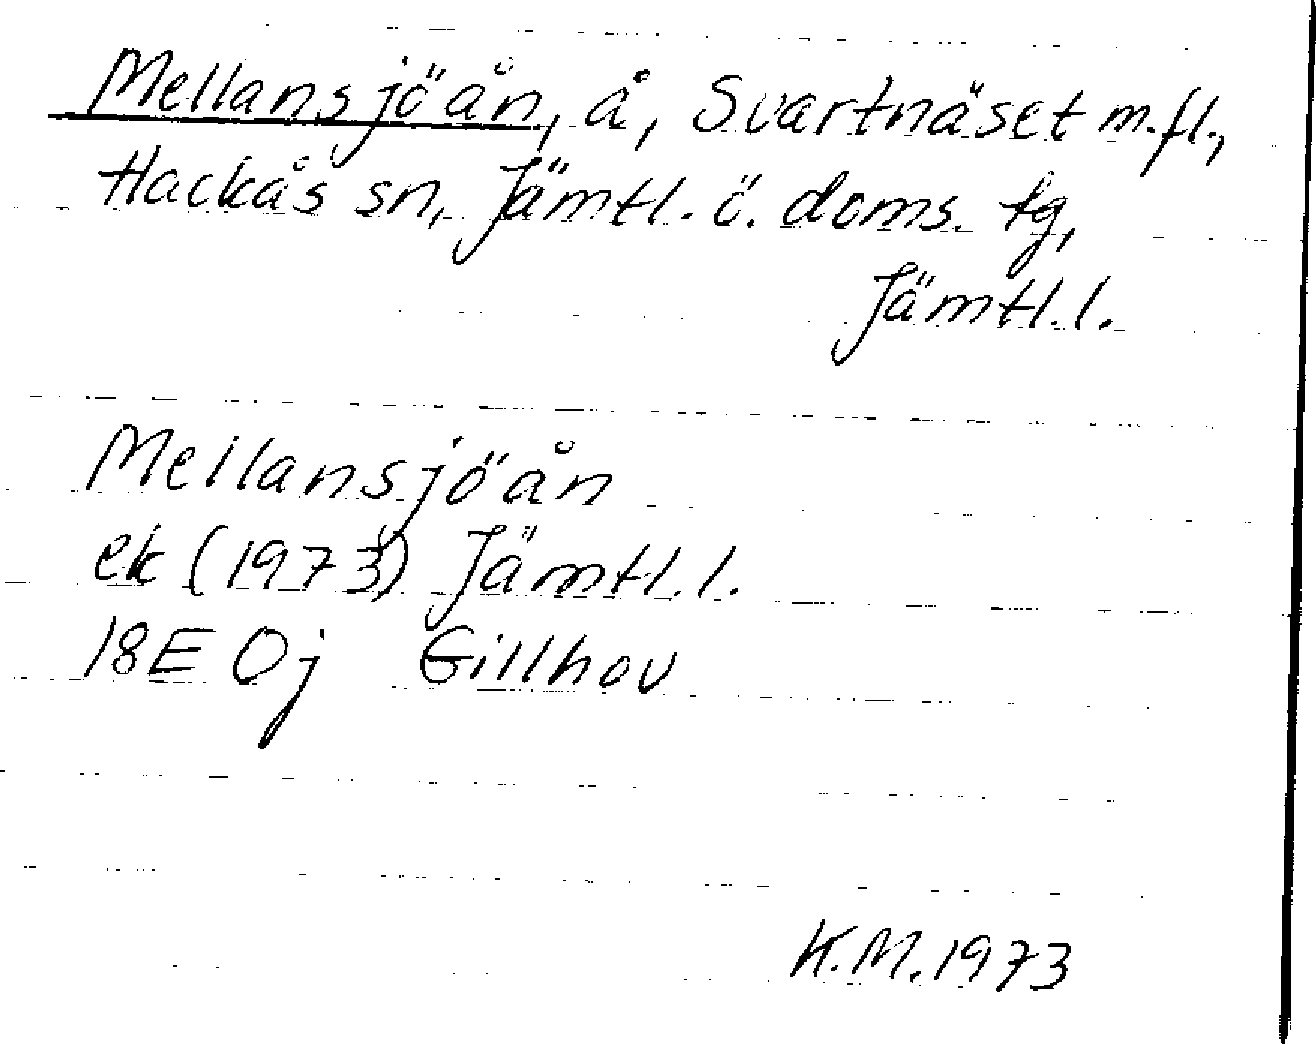 Mellansjöån, å, Svartnäset m.fl.,
Hackås sn, Jämtl. ö. doms. tg,
Jämtl.l.
Mellansjöån
ek (1973) Jämtl.l.
18E 0j Gillhov
K.M. 1973